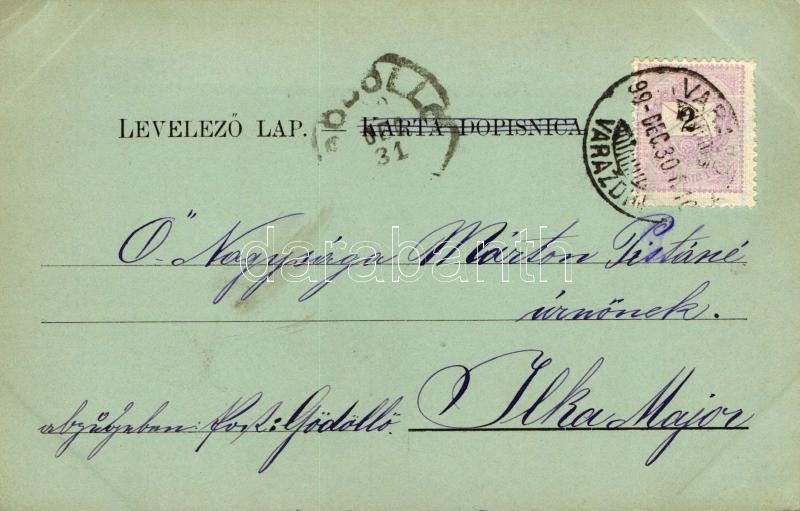 LEVELEZŐ LAP. — KARTA DOPISNICA
GÖDÖLLŐ
DEC
31
VARAŽDIN
99-DEC.30
VARAZD
2
Ő" Nagysága Márton Pistáné
úrnőnek.
Ilka Major
abzugeben Post: Gödöllő.
darabanth